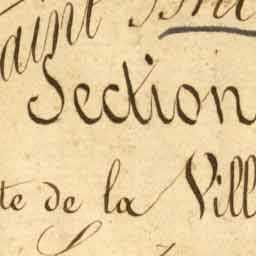 aint Bru
Section
te de la Vill